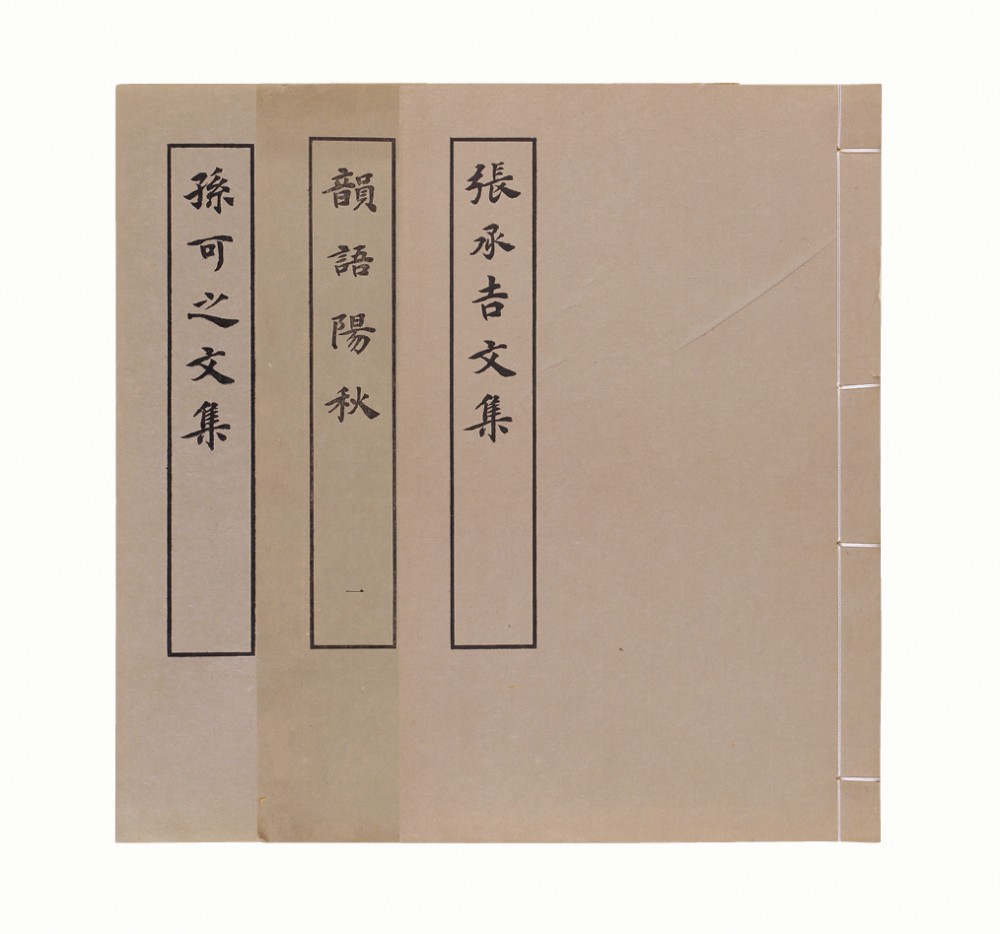 張承吉文集
韻語陽秋
一
孫可之文集